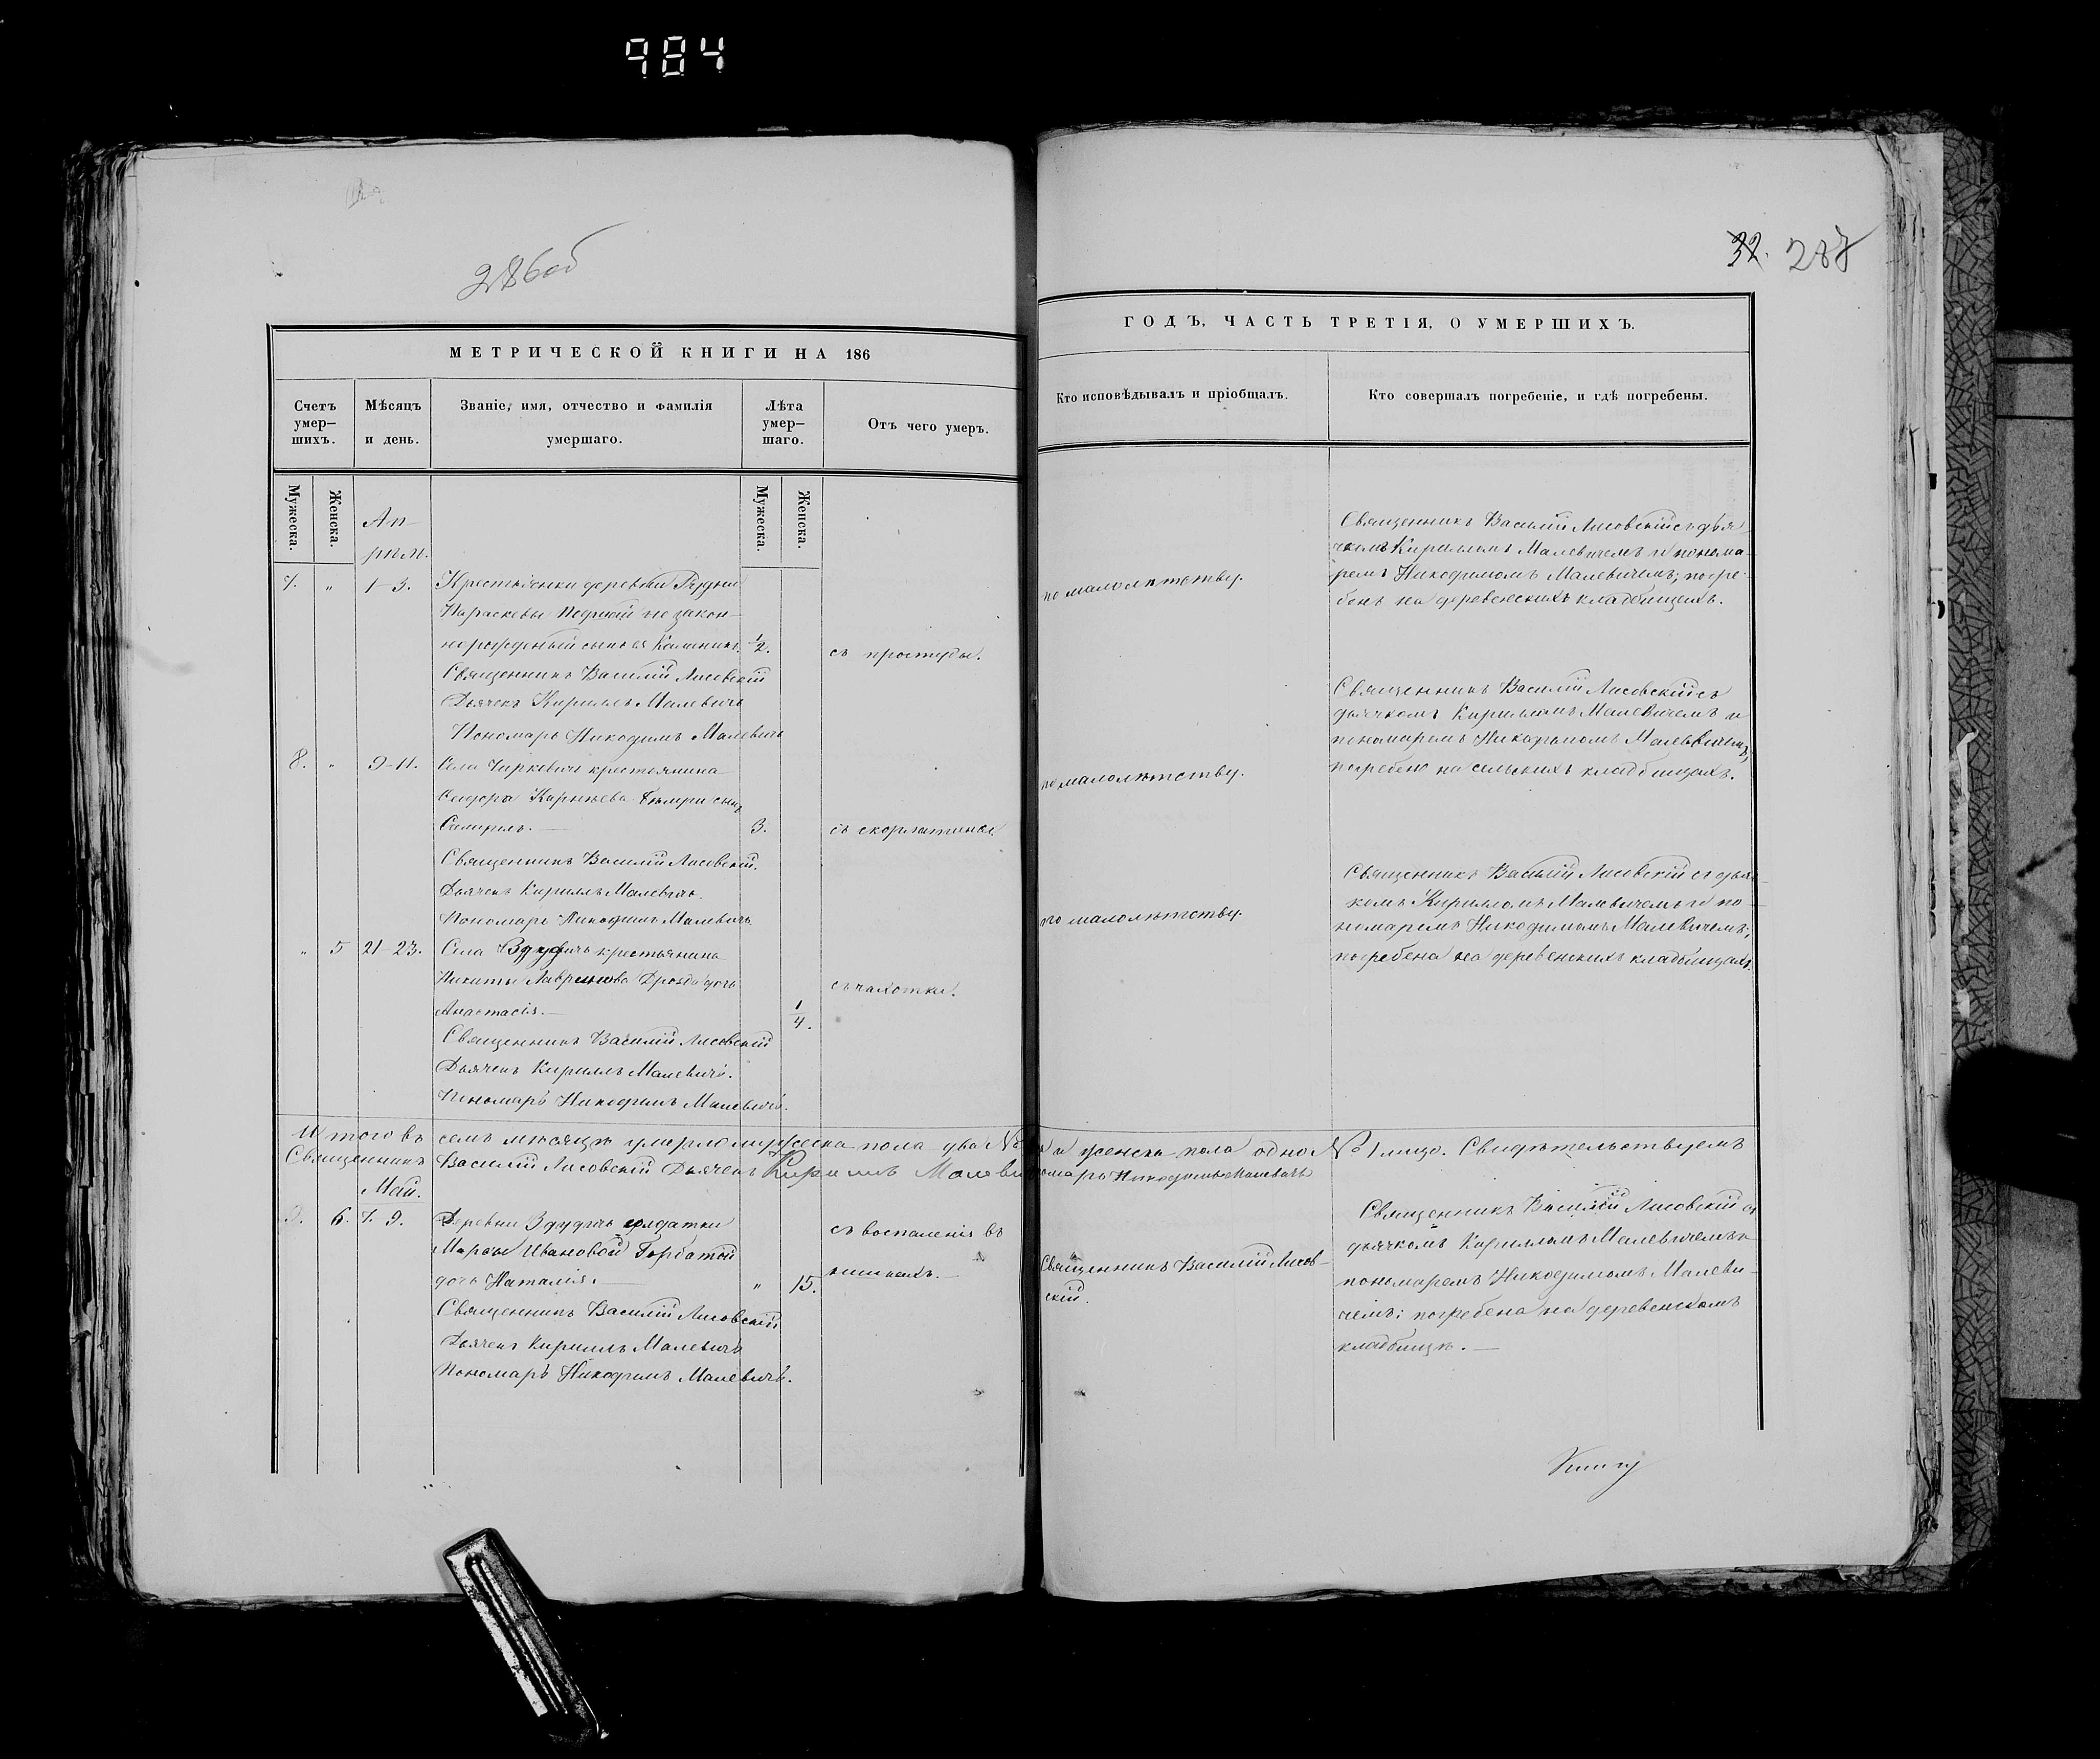 984
286об
32. 287
МЕТРИЧЕСКОЙ КНИГИ НА 186
Счетъ умер-
шихъ.
Мѣсяцъ
и день.
Званіе, имя, отчество и фамилія
умершаго.
Лѣта
умер-
шаго.
Отъ чего умеръ.
Мужеска.
Женска.
Мужеска.
Женска.
Ап-
рѣль.
7. " 1-3. Крестьянки деревни Рудни
Параскевы незакон-
норожденый сынъ ея 1/2. съ простуды.
Священникъ Василій Лисовскій
Дьячекъ Кириллъ Малевичъ
Пономарь Никодимъ Малевичъ
8. " 9-11. Села Чирковичъ крестьянина
Сидора сынъ
3. съ скорлатины.
Священникъ Василій Лисовскій.
Дьячекъ Кириллъ Малевичъ.
Пономарь Никодимъ Малевичъ
" 5 21-23. Села Здудичъ крестьянина
Никиты Лавренова Дрозда дочь
Анастасія.— 1/4. съ чахотки.
Священникъ Василій Лисовскій
Дьячекъ Кириллъ Малевичъ.
Пономарь Никодимъ Малевичъ.
Итого въ семъ мѣсяцѣ умерло мужеска пола два №
Священникъ Василій Лисовскій Дьячекъ Кириллъ Малеви
Май.
9. 6. 7. 9. Деревни Здудичъ солдатки
Марѳы Ивановой Горбатой
дочь Наталія.— " 15. съ воспаленія въ
кишкахъ.—
Священникъ Василій Лисовскій
Дьячекъ Кириллъ Малевичъ
Пономарь Никодимъ Малевичъ.
ГОДЪ, ЧАСТЬ ТРЕТІЯ, О УМЕРШИХЪ.
Кто исповѣдывалъ и пріобщалъ.
Кто совершалъ погребеніе, и гдѣ погребены.
по малолѣтству.
Священникъ Василій Лисовскій съ дья-
чкомъ Кирилломъ Малевичемъ и понома-
ремъ Никодимомъ Малевичемъ; погре-
бенъ на деревенскихъ кладбищахъ.
по малолѣтству.
Священникъ Василій Лисовскій съ
дьячкомъ Кирилломъ Малевичемъ и
пономаремъ Никодимомъ Малевичемъ;
погребенъ на сельскихъ кладбищахъ.
по малолѣтству.
Священникъ Василій Лисовскій съ дьяч-
комъ Кирилломъ Малевичемъ и по-
номаремъ Никодимомъ Малевичемъ;
погребена на деревенскихъ кладбищахъ.
и женска пола одно № 1 лицо. Свидѣтельствуемъ
номарь Никодимъ Малевичъ
Священникъ Василій Лисов-
скій.
Священникъ Василій Лисовскій съ
дьячкомъ Кирилломъ Малевичемъ и
пономаремъ Никодимомъ Малеви-
чемъ; погребена на деревенскомъ
кладбищѣ.—
Книгу